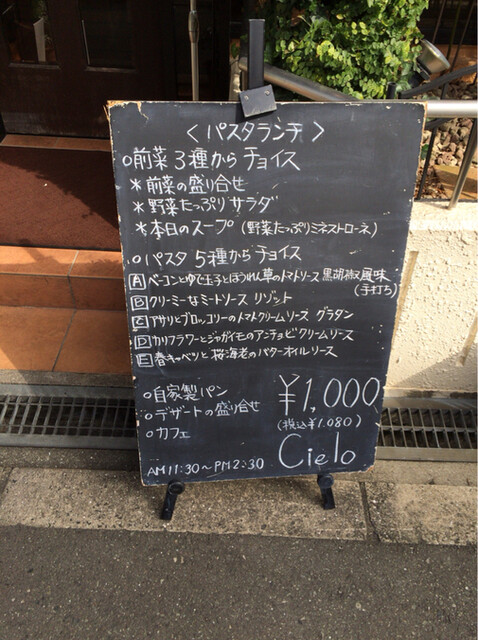 ＜パスタランチ＞
○前菜3種からチョイス
＊前菜の盛り合せ
＊野菜たっぷりサラダ
＊本日のスープ（野菜たっぷりミネストローネ）
○パスタ5種からチョイス
A ベーコンとゆで玉子とほうれん草のトマトソース 黒胡椒風味
（手打ち）
B クリーミーなミートソース リゾット
C アサリとブロッコリーのトマトクリームソース グラタン
D カリフラワーとジャガイモのアンチョビクリームソース
E 春キャベツと桜海老のバターオイルソース
○自家製パン
○デザートの盛り合せ
○カフェ
¥1,000
（税込¥1,080）
AM11:30〜PM2:30
Cielo